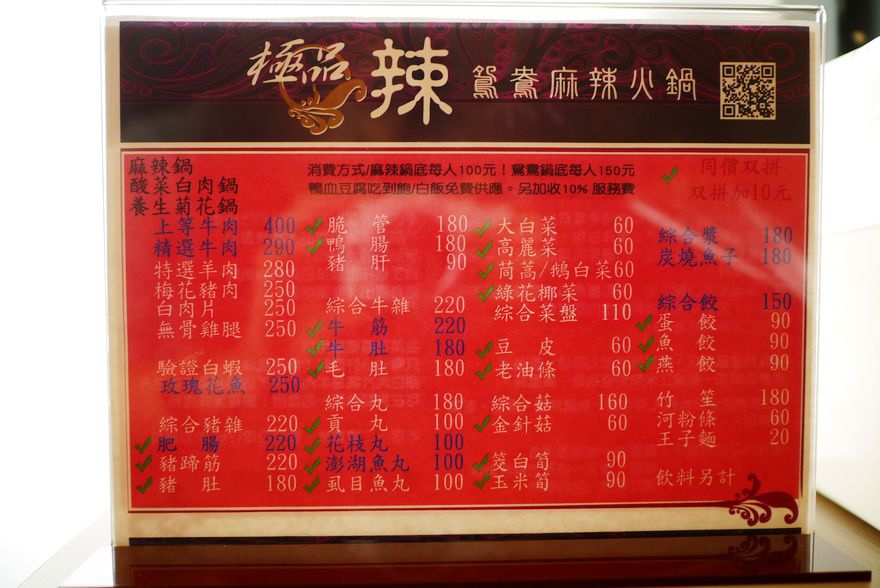 極品 辣 鴛鴦麻辣火鍋
麻辣鍋
酸菜白肉鍋
養生菊花鍋
消費方式/麻辣鍋底每人100元！鴛鴦鍋底每人150元
鴨血豆腐吃到飽/白飯免費供應。另加收10% 服務費
✓ 同價双拼
双拼加10元
上等牛肉 400
精選牛肉 290
特選羊肉 280
梅花豬肉 250
白肉片 250
無骨雞腿 250
驗證白蝦 250
玫瑰花魚 250
綜合豬雜 220
✓肥腸 220
✓豬蹄筋 220
✓豬肚 180
✓脆管 180
✓鴨腸 180
豬肝 90
綜合牛雜 220
✓牛筋 220
✓牛肚 180
✓毛肚 180
綜合丸 180
✓貢丸 100
✓花枝丸 100
✓澎湖魚丸 100
✓虱目魚丸 100
✓大白菜 60
✓高麗菜 60
✓茼蒿/鵝白菜60
✓綠花椰菜 60
綜合菜盤 110
✓豆皮 60
✓老油條 60
綜合菇 160
✓金針菇 60
✓筊白筍 90
✓玉米筍 90
綜合漿 180
炭燒魚子 180
綜合餃 150
✓蛋餃 90
✓魚餃 90
✓燕餃 90
竹笙 180
河粉條 60
王子麵 20
飲料另計